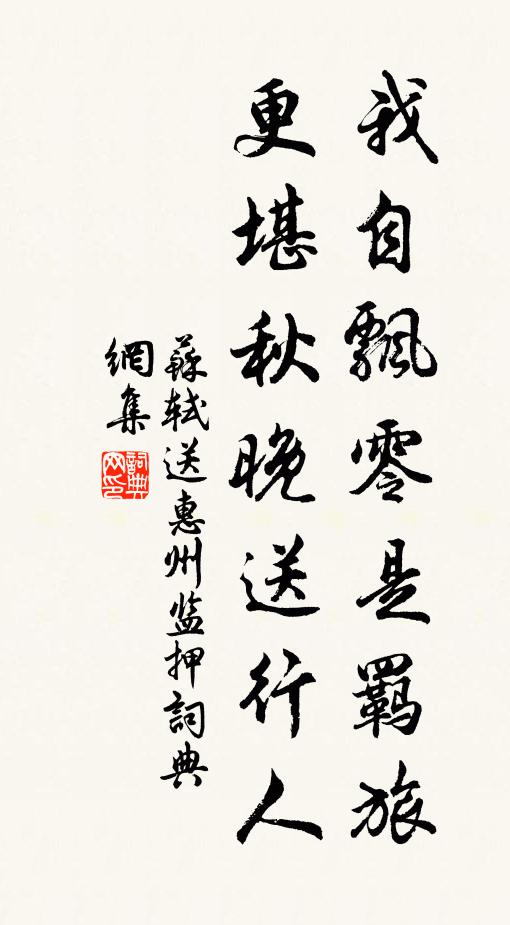 我自飄零是羈旅
更堪秋晚送行人
蘇軾送惠州监押詞典
網集
詞典網印